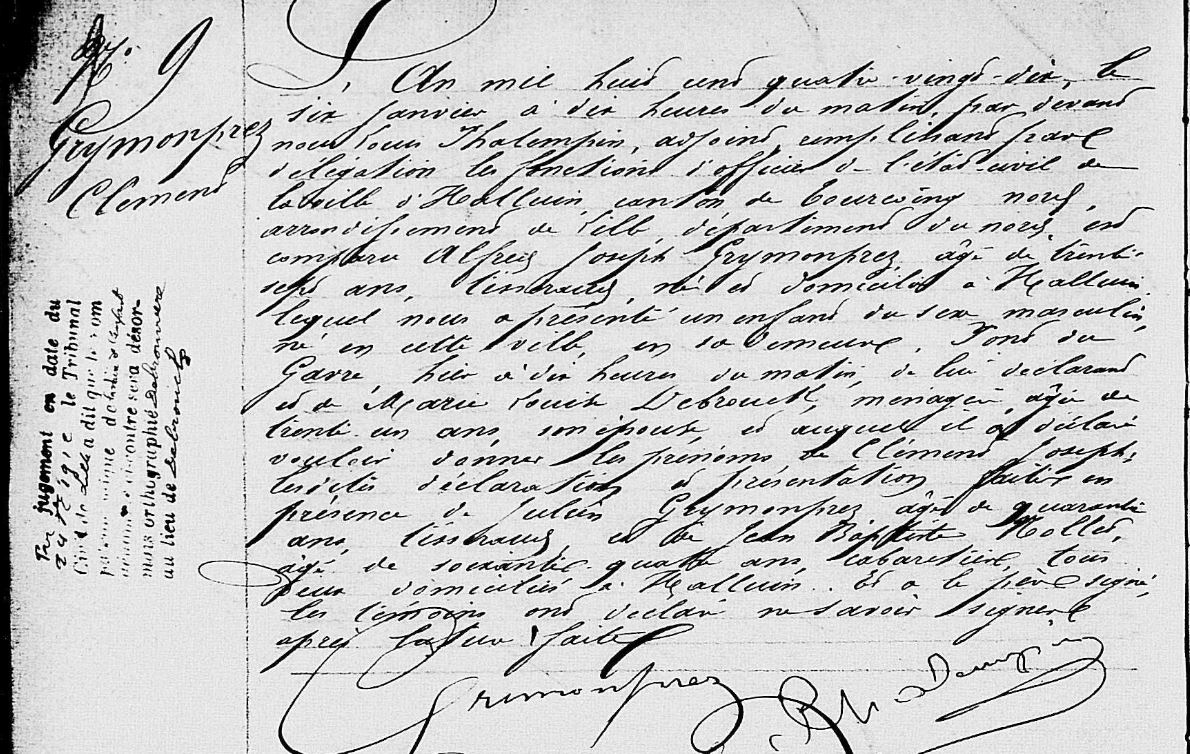 N.° 9
Grymonprez
Clément
L'An mil huit cent quatre-vingt-dix, le
six janvier à dix heures du matin, par devant
nous Louis Thalempin, adjoint, remplissant par
délégation les fonctions d'officier de l'état-civil de
la ville d'Halluin, canton de Tourcoing nord,
arrondissement de Lille, département du nord, est
comparu Alfred Joseph Grymonprez, âgé de trente-
sept ans, tisserand, né et domicilié à Halluin
lequel nous a présenté un enfant du sexe masculin,
né en cette ville, en sa demeure, Fond du
Gavre, hier à dix heures du matin, de lui déclarant
et de Marie Louise Debrouck, ménagère, âgée de
trente un ans, son épouse, et auquel il a déclaré
vouloir donner les prénoms de Clément Joseph;
lesdites déclaration et présentation faites en
présence de Julien Grymonprez âgé de quarante
ans, tisserand, et de Jean Baptiste Nollet,
âgé de soixante-quatre ans, cabaretier, tous
deux domiciliés à Halluin. Et a le père signé,
les témoins ont déclaré ne savoir signer
après lecture faite
Grimonprez
Par jugement en date du
le Tribunal
Civil de Lille a dit que le nom
de la mère de l'enfant
ci-contre sera désor-
mais orthographié
au lieu de Debrouck